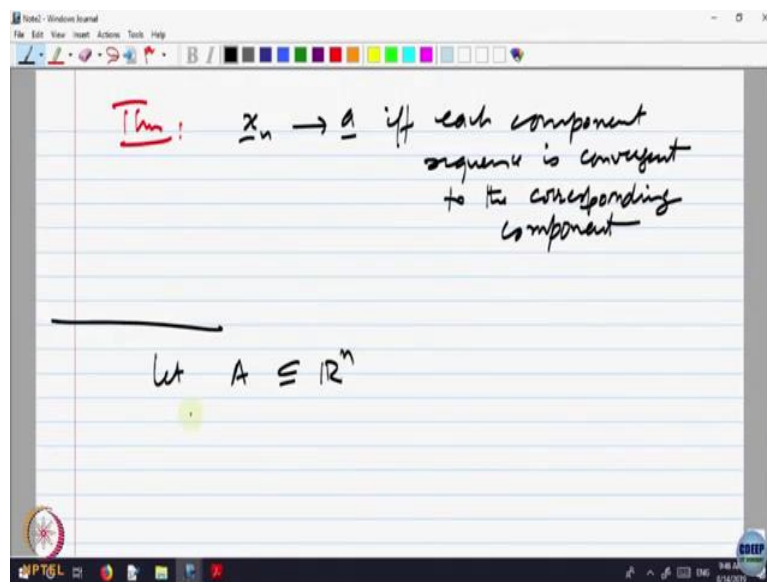 Note2 - Windows Journal
File Edit View Insert Actions Tools Help
B I
Thm: x_n → a iff each component
sequence is convergent
to the corresponding
component
Let A ⊆ ℝⁿ
NPTEL
CDEEP
ENG
9:48 AM
6/14/2019